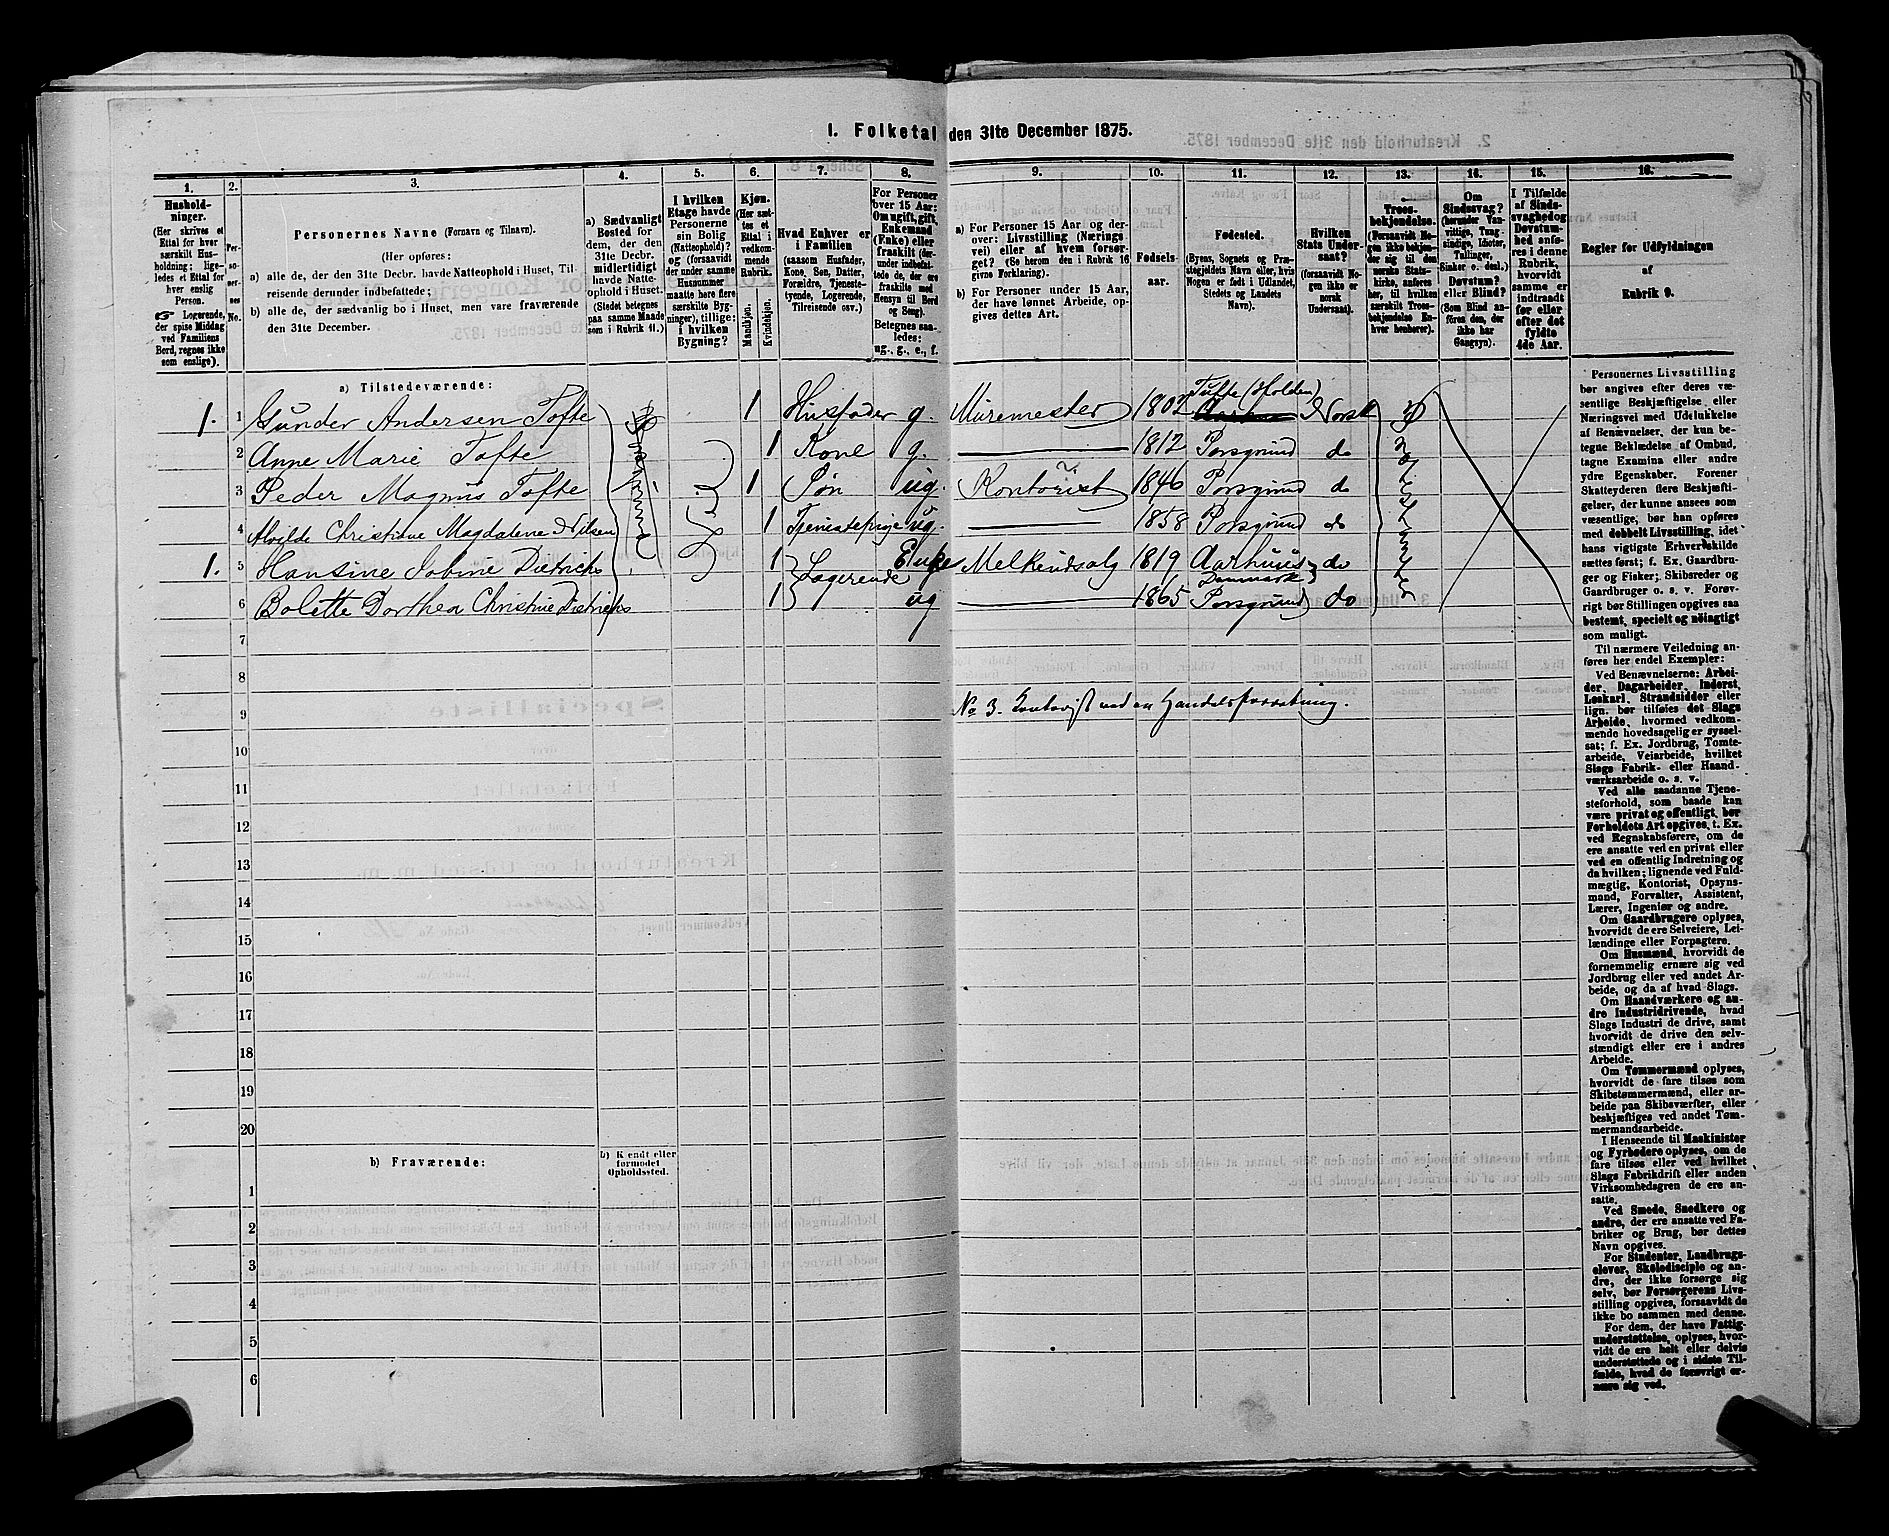 1. Folketal den 31te December 1875.
1.
2.
3.
4.
5.
6.
7.
8.
9.
10.
11.
12.
13.
14.
15.
16.
Hushold-
ninger.
(Her skrives et
Ettal for hver
særskilt Hus-
holdning; lige-
ledes et Ettal for
hver enslig
Person.
☞ Logerende,
der spise Middag
ved Familiens
Bord, regnes ikke
som enslige).
Per-
so-
ner-
nes
No.
Personernes Navne (Fornavn og Tilnavn).
(Her opføres:
a) alle de, der den 31te Decbr. havde Natteophold i Huset, Til-
reisende derunder indbefattede;
b) alle de, der sædvanlig bo i Huset, men vare fraværende
den 31te December.
a) Sædvanligt
Bosted for
dem, der den
31te Decbr.
midlertidigt
havde Natte-
ophold i Huset
(Stedet betegnes
paa samme Maade
som i Rubrik 11.)
I hvilken
Etage havde
Personerne
sin Bolig
(Natteophold)?
og (forsaavidt
der under samme
Husnummer
maatte høre flere
særskilte Byg-
ninger), tillige:
i hvilken
Bygning?
Kjøn.
(Her sæt-
tes et
Ettal i
vedkom-
mende
Rubrik.
Mandkjøn.
Kvindekjøn.
Hvad Enhver er
i Familien
(saasom Husfader,
Kone, Søn, Datter,
Forældre, Tjeneste-
tyende, Logerende,
Tilreisende osv.)
For Personer
over 15 Aar:
Om ugift, gift,
Enkemand
(Enke) eller
fraskilt
Betegnes saa-
ledes:
ug., g., e., f.
a) For Personer 15 Aar og der-
over: Livsstilling (Nærings
vei) eller af hvem forsør-
get? (Se herom den i Rubrik 16
givne Forklaring).
b) For Personer under 15 Aar,
der have lønnet Arbeide, op-
gives dettes Art.
Fødsels-
aar.
Fødested.
(Byens, Sognets og Præ-
stegjeldets Navn eller, hvis
Nogen er født i Udlandet,
Stedets og Landets
Navn).
Hvilken
Stats Under-
saat?
(forsaavidt No-
gen ikke er
norsk
Undersaat).
Troes-
bekjendelse.
(Forsaavidt No-
gen ikke bekjen-
der sig til den
norske Stats-
kirke, anføres
her, til hvilken
særskilt Troes-
bekjendelse En-
hver henhører).
Om
Sindssvag?
(herunder Van-
vittige, Tung-
sindige, Idioter,
Tullinger,
Sinker o. desl.)
Døvstum?
eller Blind?
(Som Blind an-
føres den, der
ikke har
Gangsyn).
I Tilfælde
af Sinds-
svaghed og
Døvstum-
hed anfø-
res i denne
Rubrik,
hvorvidt
samme er
indtraadt
før eller
efter det
fyldte
4de Aar.
Regler for Udfyldningen
af
Rubrik 9.
a) Tilstedeværende:
1. 1 Gunder Andersen Tofte 1 Husfader g. Muremester 1802 Tufte (Holden) Norsk
2 Anne Marie Tofte 1 Kone g. 1812 Porsgrund do
3 Peder Magnus Tofte 1 Søn ug. Kontorist 1846 Porsgrund do
4 Alvilde Christiane Magdalene Nilsen 1 Tjenestepige ug. 1858 Porsgrund do
1. 5 Hansine Sabine Dietrichs 1 Logerende Enke Melkeudsalg 1819 Aarhuus Danmark do
6 Bolette Dorthea Christine Dietrichs 1 ug 1865 Porsgrund do
7
8
9 No 3. Kontorist ved en Handelsforretning.
10
11
12
13
14
15
16
17
18
19
20
b) Fraværende:
b) Kjendt eller
formodet
Opholdssted.
1
2
3
4
5
6
Personernes Livsstilling
bør angives efter deres væ-
sentlige Beskjæftigelse eller
Næringsvei med Udelukkelse
af Benævnelser, der kun be-
tegne Beklædelse af Ombud,
tagne Examina eller andre
ydre Egenskaber. Forener
Skatteyderen flere Beskjæfti-
gelser, der kunne ansees som
væsentlige, bør han opføres
med dobbelt Livsstilling, idet
hans vigtigste Erhvervskilde
sættes først; f. Ex. Gaardbru-
ger og Fisker; Skibsreder og
Gaardbruger o. s. v. Forøv-
rigt bør Stillingen opgives saa
bestemt, specielt og nøiagtigt
som muligt.
Til nærmere Veiledning an-
føres her endel Exempler:
Ved Benævnelserne: Arbei-
der, Dagarbeider, Inderst,
Løskarl, Strandsidder eller
lign. bør tilføies det Slags
Arbeide, hvormed vedkom-
mende hovedsagelig er syssel-
sat; f. Ex. Jordbrug, Tomte-
arbeide, Veiarbeide, hvilket
Slags Fabrik- eller Haand-
værksarbeide o. s. v.
Ved alle saadanne Tjene-
steforhold, som baade kan
være privat og offentligt, bør
Forholdets Art opgives, t. Ex.
ved Regnskabsførere, om de
ere ansatte ved en privat eller
ved en offentlig Indretning og
da hvilken; lignende ved Fuld-
mægtig, Kontorist, Opsyns-
mand, Forvalter, Assistent,
Lærer, Ingeniør og andre.
Om Gaardbrugere oplyses,
hvorvidt de ere Selveiere, Lei-
lændinge eller Forpagtere.
Om Husmænd, hvorvidt de
fornemmelig ernære sig ved
Jordbrug eller ved andet Ar-
beide, og da af hvad Slags.
Om Haandværkere og an-
dre Industridrivende, hvad
Slags Industri de drive, samt
hvorvidt de drive den selv-
stændigt eller ere i andres
Arbeide.
Om Tømmermænd oplyses,
hvorvidt de fare tilsøs som
Skibstømmermænd, eller ar-
beide paa Skibsværfter, eller
beskjæftiges ved andet Tøm-
mermandsarbeide.
I Henseende til Maskinister
og Fyrbødere oplyses, om de
fare tilsøs eller ved hvilket
Slags Fabrikdrift eller anden
Virksomhedsgren de ere an-
satte.
Ved Smede, Snedkere og
andre, der ere ansatte ved Fa-
briker og Brug, bør dettes
Navn opgives.
For Studenter, Landbrugs-
elever, Skoledisciple og an-
dre, der ikke forsørge sig
selv, bør Forsørgerens Livs-
stilling opgives, forsaavidt de
ikke bo sammen med denne.
For dem, der have Fattig-
understøttelse, oplyses, hvor-
vidt de ere helt eller delvis
understøttede og i sidste Til-
fælde, hvad de forøvrigt er-
nære sig ved.